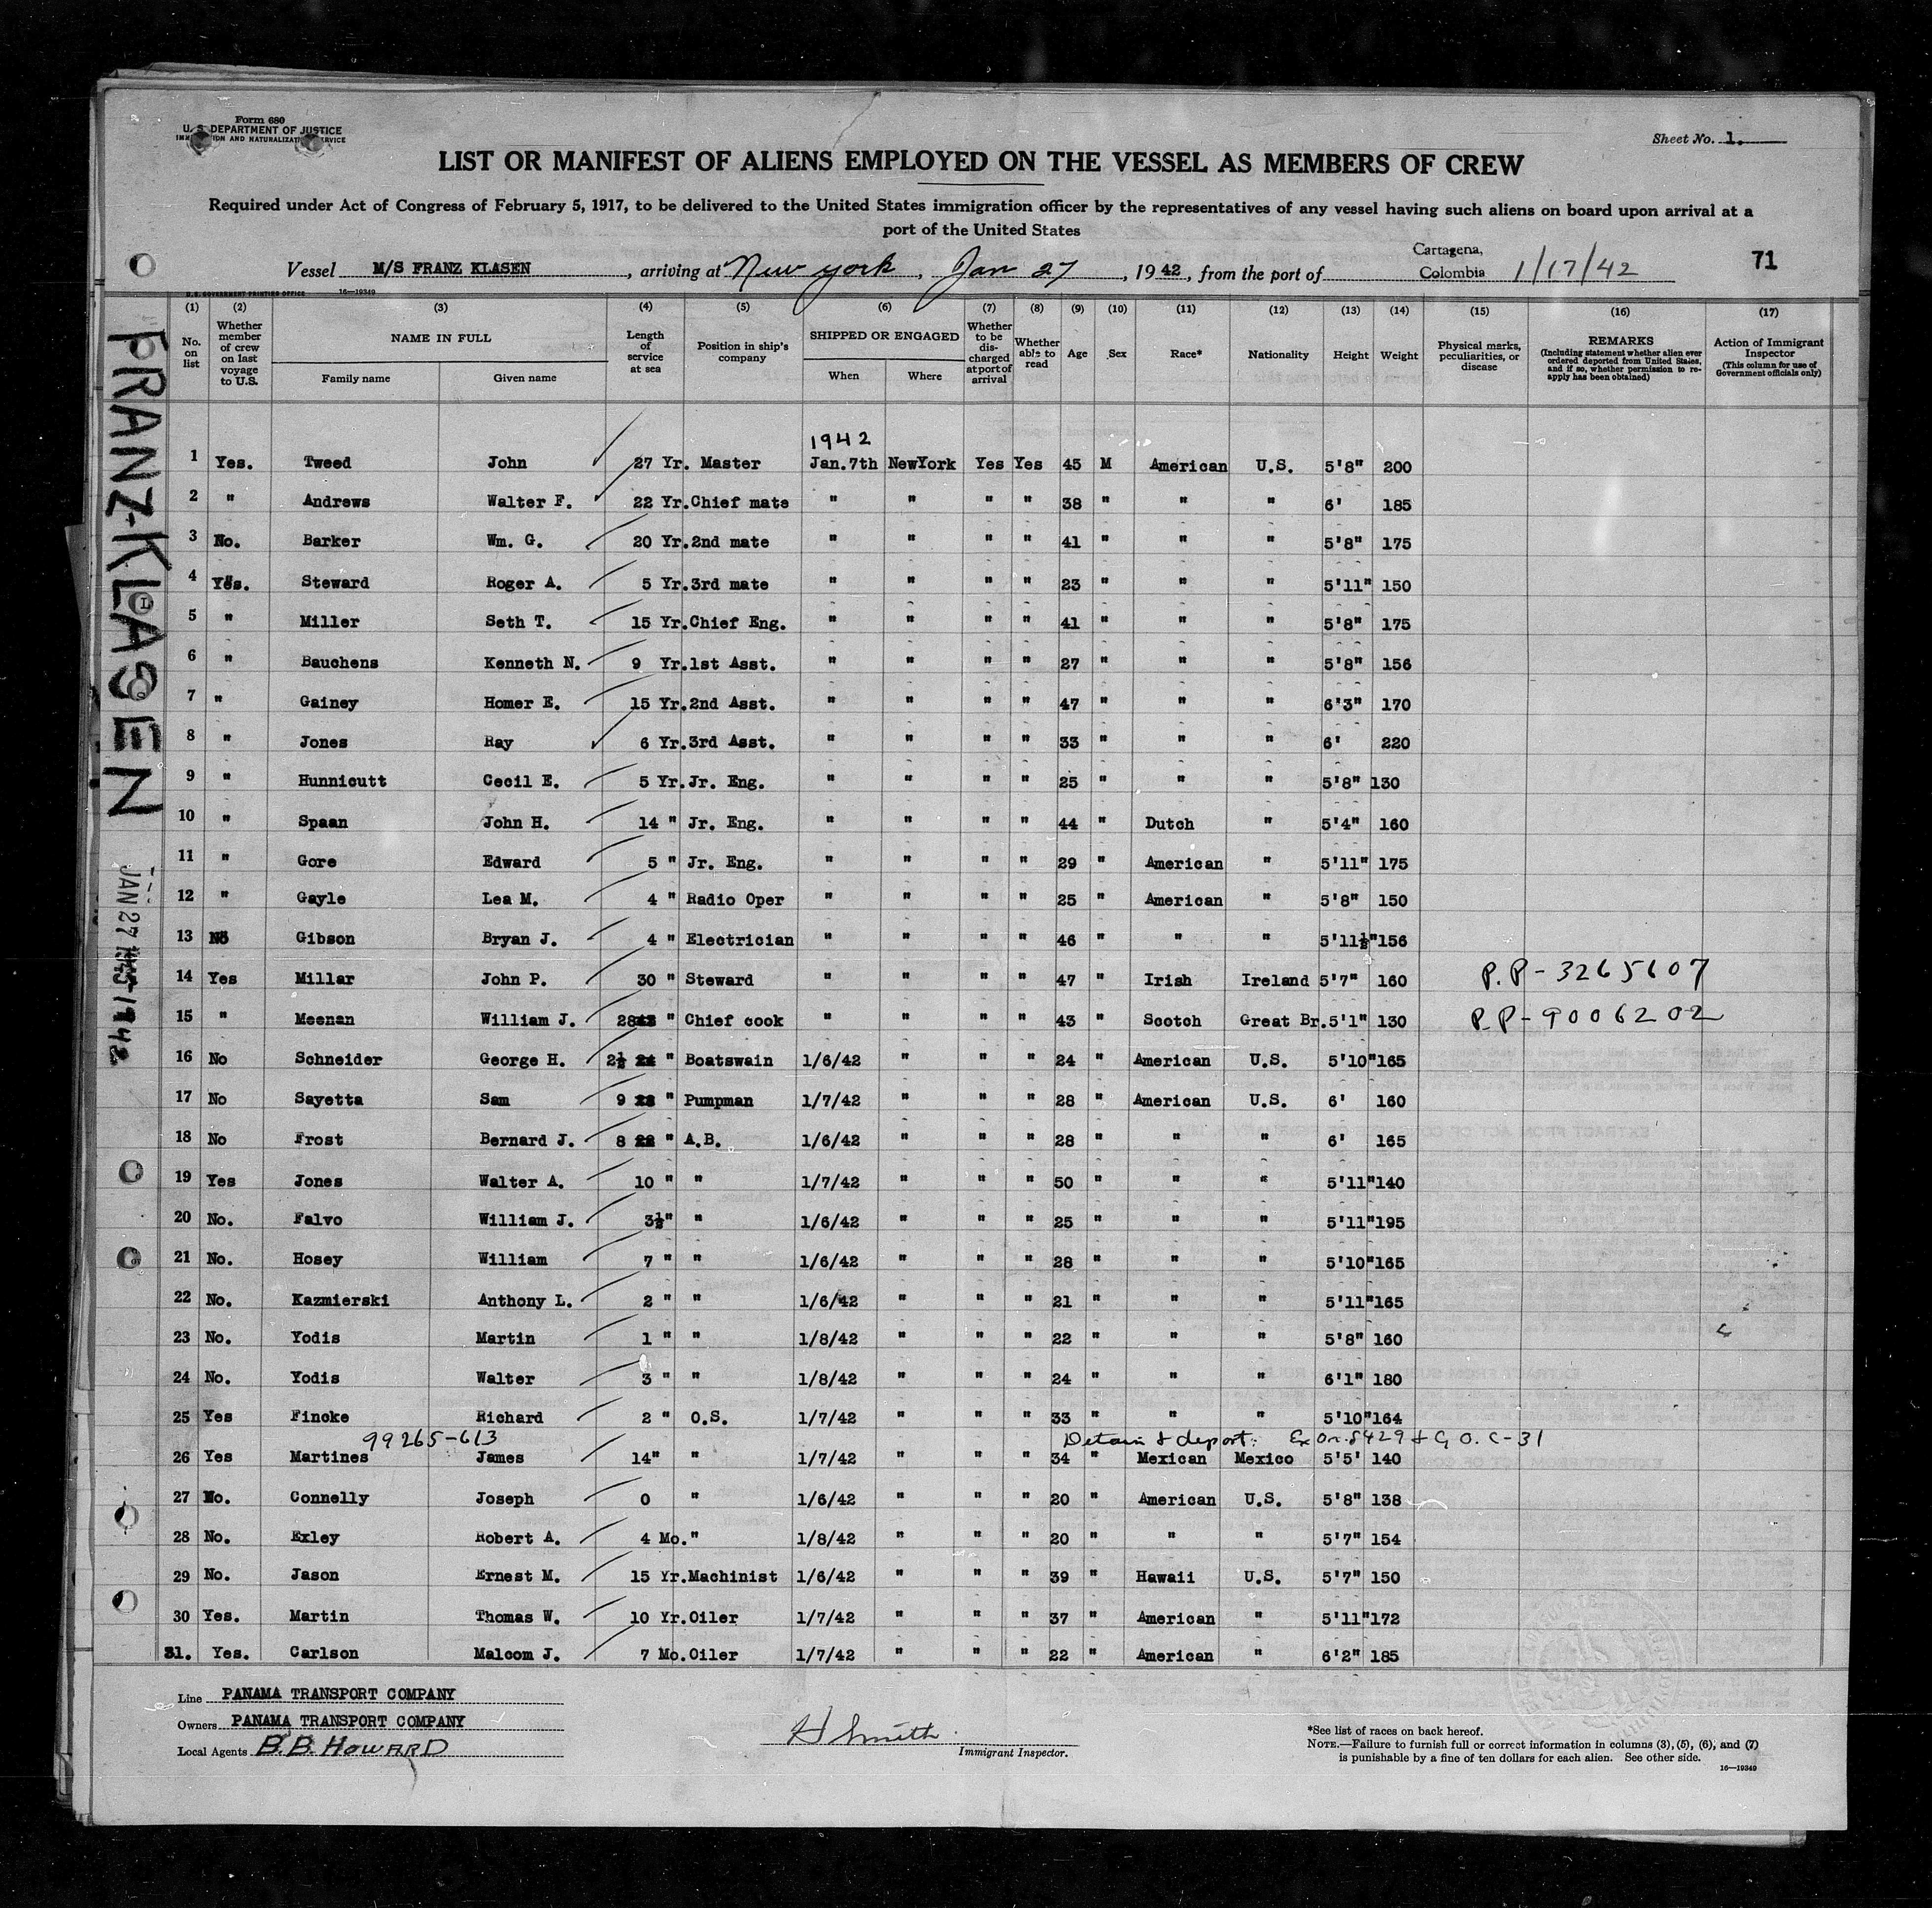 Form 680
U. S. DEPARTMENT OF JUSTICE
IMMIGRATION AND NATURALIZATION SERVICE
Sheet No. 1.
LIST OR MANIFEST OF ALIENS EMPLOYED ON THE VESSEL AS MEMBERS OF CREW
Required under Act of Congress of February 5, 1917, to be delivered to the United States immigration officer by the representatives of any vessel having such aliens on board upon arrival at a
port of the United States
Vessel M/S FRANZ KLASEN, arriving at New york, Jan 27, 1942, from the port of Cartagena, Colombia 1/17/42
71
U.S. GOVERNMENT PRINTING OFFICE 16—19349
(1) (2) (3) (4) (5) (6) (7) (8) (9) (10) (11) (12) (13) (14) (15) (16) (17)
No. on list
Whether member of crew on last voyage to U.S.
NAME IN FULL
Family name
Given name
Length of service at sea
Position in ship's company
SHIPPED OR ENGAGED
When
Where
Whether to be discharged at port of arrival
Whether able to read
Age
Sex
Race*
Nationality
Height
Weight
Physical marks, peculiarities, or disease
REMARKS
(Including statement whether alien ever ordered deported from United States, and if so, whether permission to reapply has been obtained)
Action of Immigrant Inspector
(This column for use of Government officials only)
FRANZ-KLASEN
JAN 27 1942
1942
1 Yes. Tweed John 27 Yr. Master Jan.7th NewYork Yes Yes 45 M American U.S. 5'8" 200
2 " Andrews Walter F. 22 Yr. Chief mate " " " " 38 " " " 6' 185
3 No. Barker Wm. G. 20 Yr. 2nd mate " " " " 41 " " " 5'8" 175
4 Yes. Steward Roger A. 5 Yr. 3rd mate " " " " 23 " " " 5'11" 150
5 " Miller Seth T. 15 Yr. Chief Eng. " " " " 41 " " " 5'8" 175
6 " Bauchens Kenneth N. 9 Yr. 1st Asst. " " " " 27 " " " 5'8" 156
7 " Gainey Homer E. 15 Yr. 2nd Asst. " " " " 47 " " " 6'3" 170
8 " Jones Ray 6 Yr. 3rd Asst. " " " " 33 " " " 6' 220
9 " Hunnicutt Cecil E. 5 Yr. Jr. Eng. " " " " 25 " " " 5'8" 130
10 " Spaan John H. 14 " Jr. Eng. " " " " 44 " Dutch " 5'4" 160
11 " Gore Edward 5 " Jr. Eng. " " " " 29 " American " 5'11" 175
12 " Gayle Lea M. 4 " Radio Oper " " " " 25 " American " 5'8" 150
13 No Gibson Bryan J. 4 " Electrician " " " " 46 " " " 5'11½" 156
14 Yes Millar John P. 30 " Steward " " " " 47 " Irish Ireland 5'7" 160 P.P - 3265607
15 " Meenan William J. 28 " Chief cook " " " " 43 " Scotch Great Br. 5'1" 130 P.P - 9006202
16 No Schneider George H. 2½ " Boatswain 1/6/42 " " " 24 " American U.S. 5'10" 165
17 No Sayetta Sam 9 " Pumpman 1/7/42 " " " 28 " American U.S. 6' 160
18 No Frost Bernard J. 8 " A.B. 1/6/42 " " " 28 " " " 6' 165
19 Yes Jones Walter A. 10 " " 1/7/42 " " " 50 " " " 5'11" 140
20 No. Falvo William J. 3½ " " 1/6/42 " " " 25 " " " 5'11" 195
21 No. Hosey William 7 " " 1/6/42 " " " 28 " " " 5'10" 165
22 No. Kazmierski Anthony L. 2 " " 1/6/42 " " " 21 " " " 5'11" 165
23 No. Yodis Martin 1 " " 1/8/42 " " " 22 " " " 5'8" 160
24 No. Yodis Walter 3 " " 1/8/42 " " " 24 " " " 6'1" 180
25 Yes Fincke Richard 2 " O.S. 1/7/42 " " " 33 " " " 5'10" 164
99265-613 Detain & deport. Ex Or. 8429 & G. O. C-31
26 Yes Martines James 14 " " 1/7/42 " " " 34 " Mexican Mexico 5'5' 140
27 No. Connelly Joseph 0 " 1/6/42 " " " 20 " American U.S. 5'8" 138
28 No. Exley Robert A. 4 Mo. " 1/8/42 " " " 20 " " " 5'7" 154
29 No. Jason Ernest M. 15 Yr. Machinist 1/6/42 " " " 39 " Hawaii U.S. 5'7" 150
30 Yes. Martin Thomas W. 10 Yr. Oiler 1/7/42 " " " 37 " American " 5'11" 172
31. Yes. Carlson Malcom J. 7 Mo. Oiler 1/7/42 " " " 22 " American " 6'2" 185
Line PANAMA TRANSPORT COMPANY
Owners PANAMA TRANSPORT COMPANY
Local Agents B.B. HOWARD
H Smith
Immigrant Inspector.
*See list of races on back hereof.
NOTE.—Failure to furnish full or correct information in columns (3), (5), (6), and (7)
is punishable by a fine of ten dollars for each alien. See other side.
16—19349